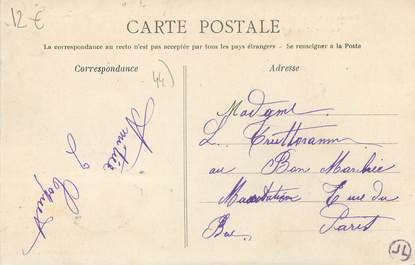 12 €
CARTE POSTALE
La correspondance au recto n'est pas acceptée par tous les pays étrangers - Se renseigner à la Poste
Correspondance
Adresse
44)
Amitiés
L
Madame
L
au Bon Marché
Rue du
Bac Paris
JL